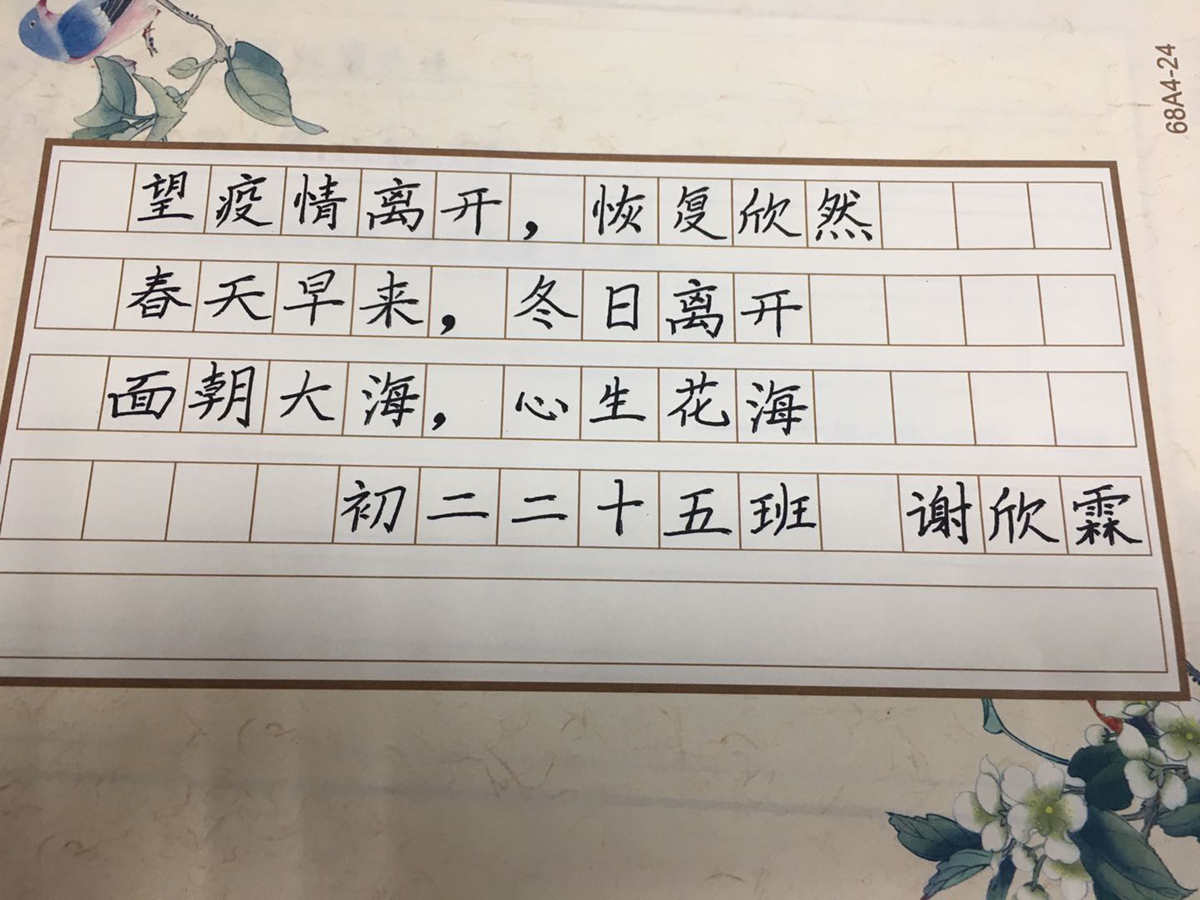 68A4-24
望疫情离开，恢复欣然
春天早来，冬日离开
面朝大海，心生花海
初二二十五班 谢欣霖